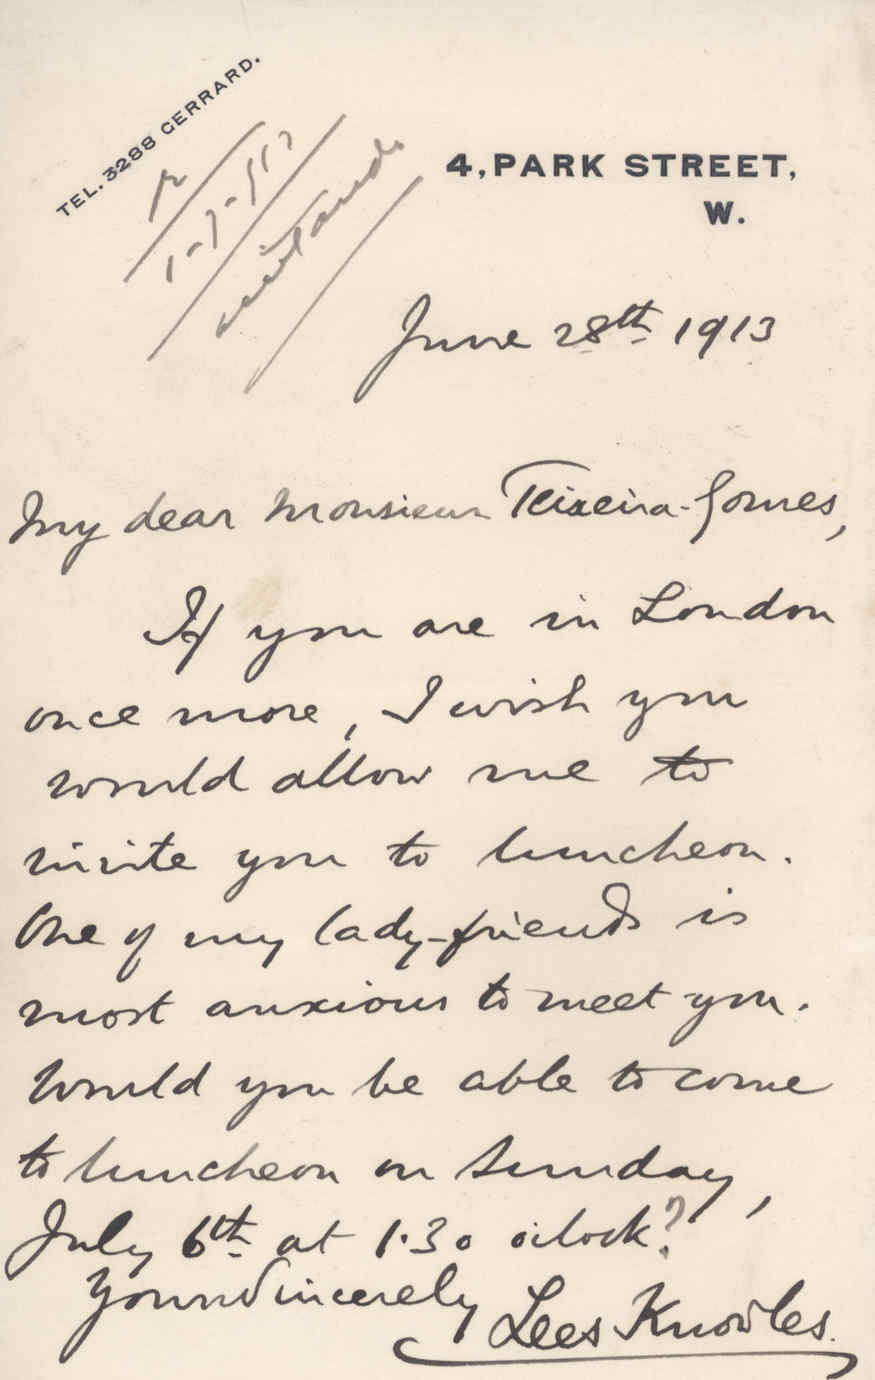 TEL. 3288 GERRARD.
4, PARK STREET,
W.
R
1-7-913
June 28th 1913
My dear Monsieur Teixeira-Gomes,
If you are in London
once more, I wish you
would allow me to
invite you to luncheon.
One of my lady-friends is
most anxious to meet you.
Would you be able to come
to luncheon on Sunday,
July 6th at 1.30 o'clock?
Yours Sincerely
Lees Knowles.